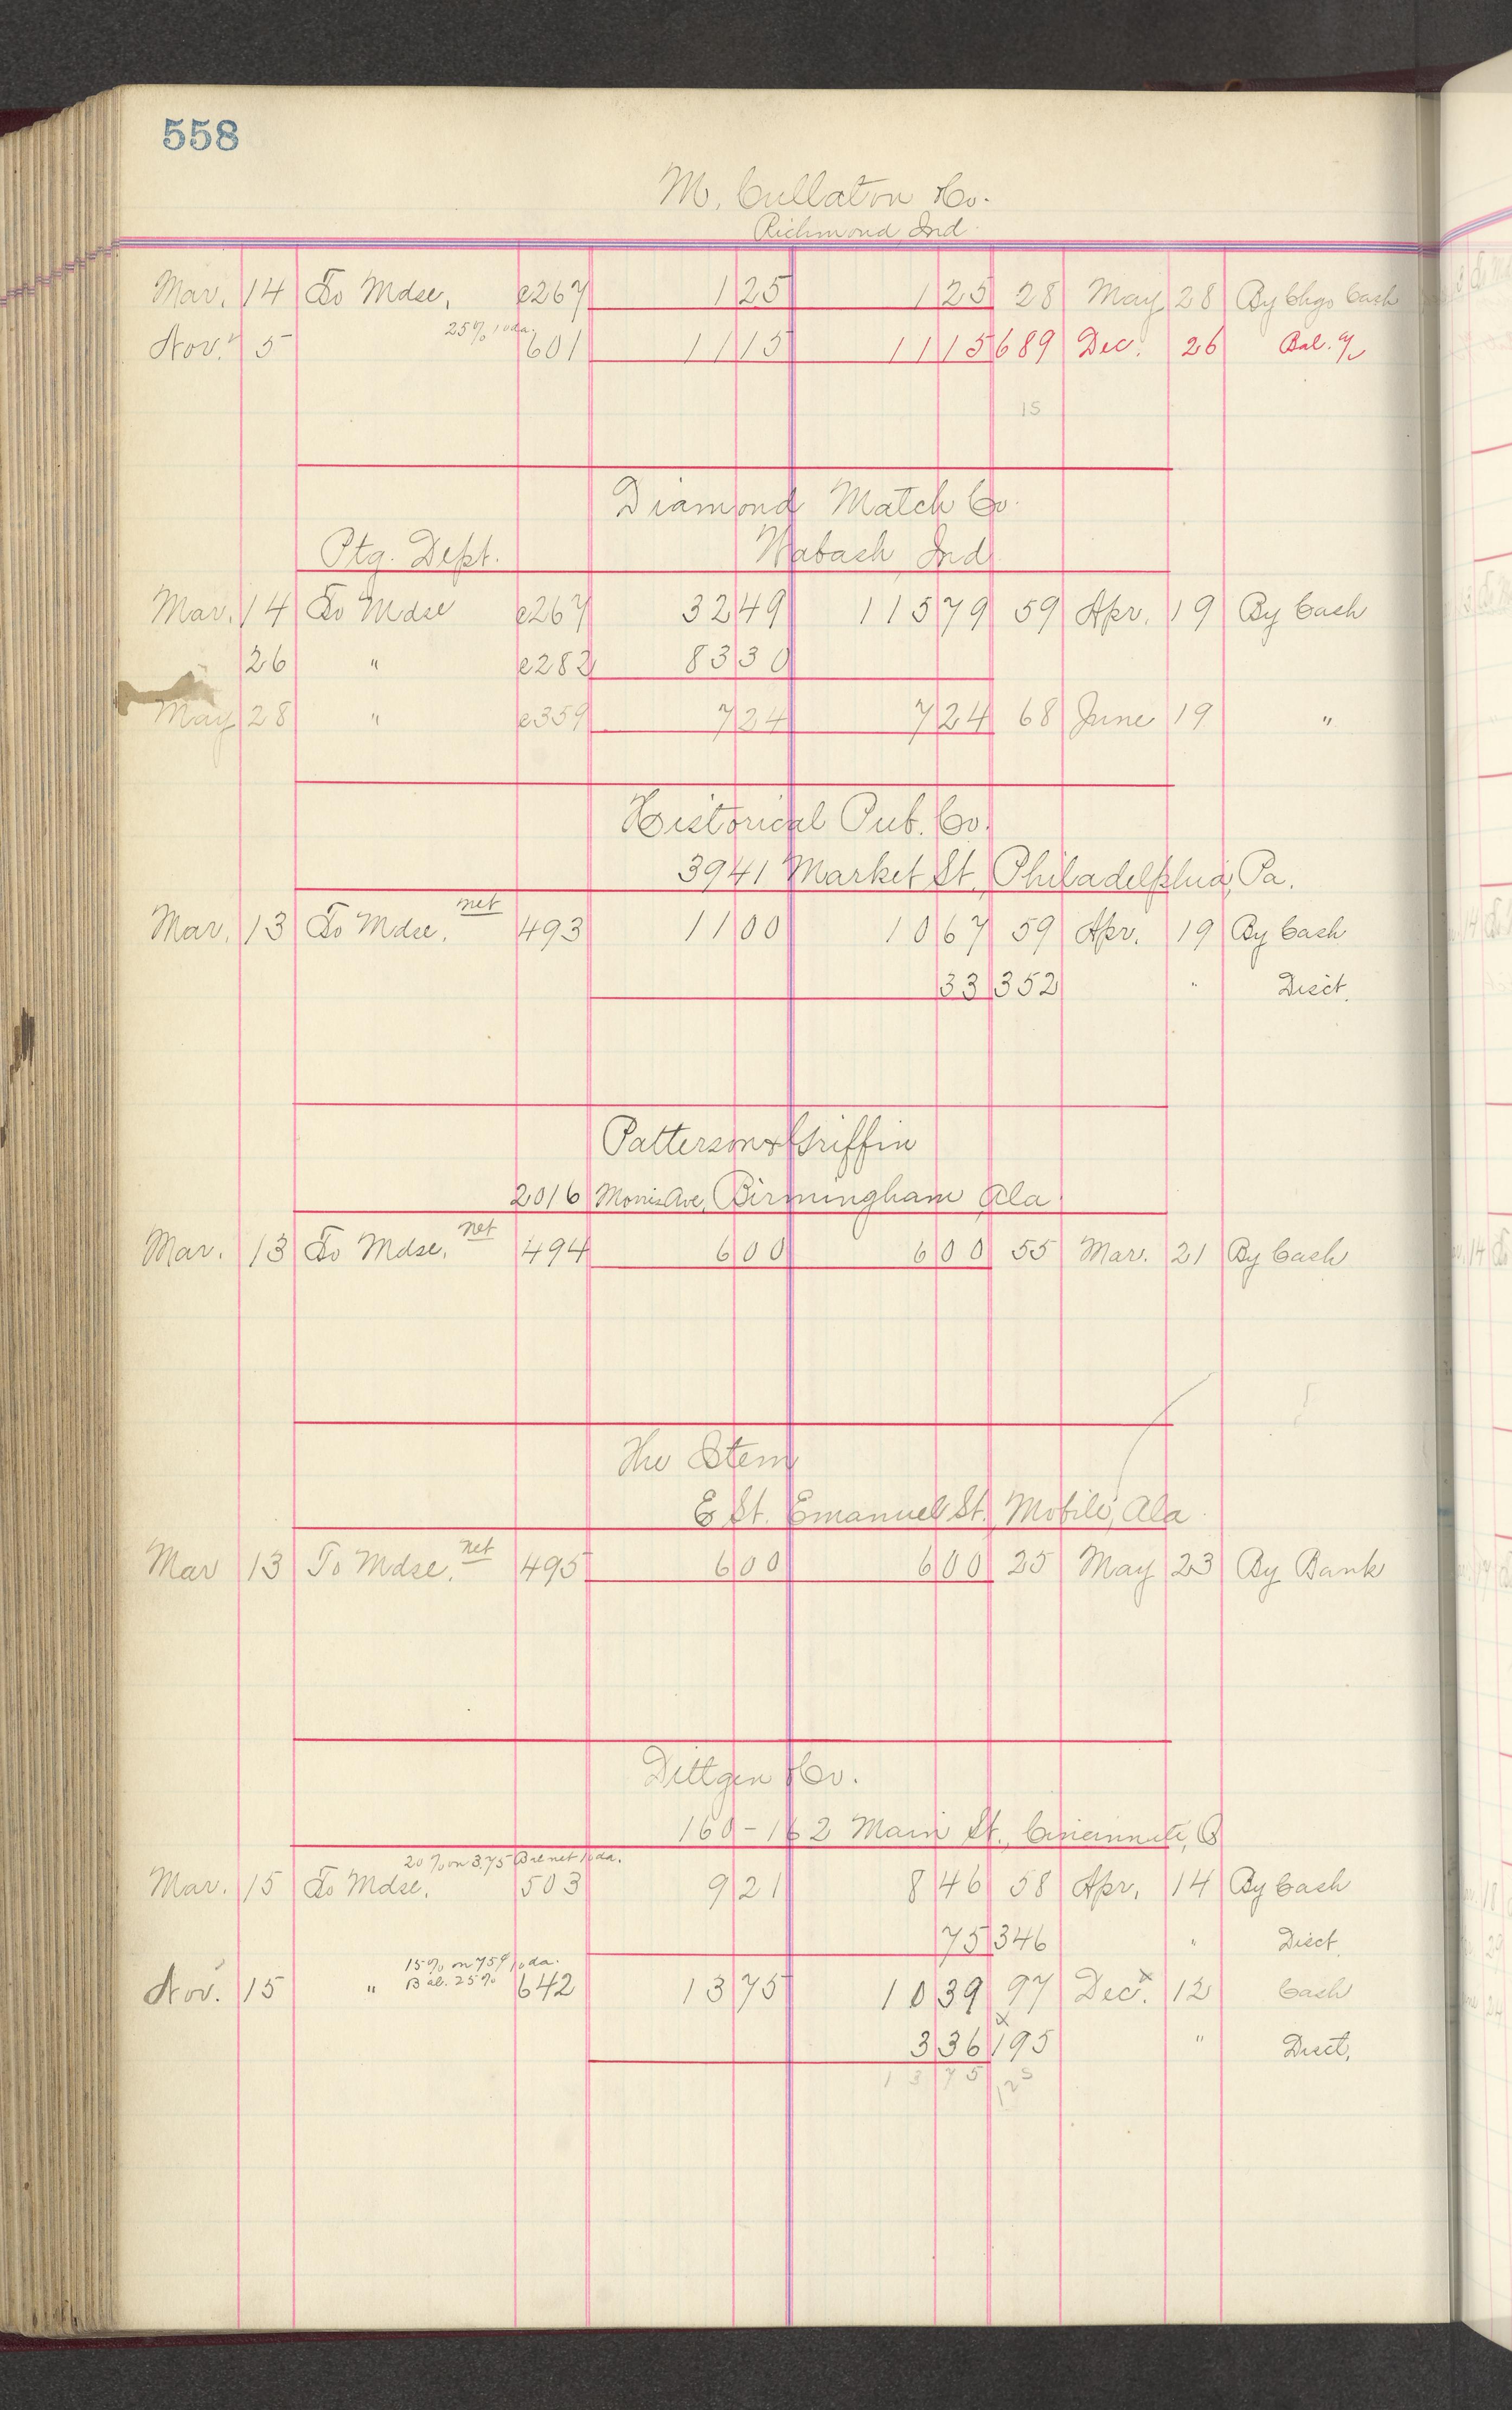 558
M. Cullaton & Co.
Richmond Ind
Mar. 14 To Mdse. e267 1 25 1 25 28 May 28 By Chgo Cash
Nov. 5 25% 10 da. 601 11 15 11 15 689 Dec. 26 Bal. %
15
Diamond Match Co.
Ptg. Dept. Wabash Ind
Mar. 14 To Mdse e267 32 49 115 79 59 Apr. 19 By Cash
26 " e282 83 30
May 28 " e359 7 24 7 24 68 June 19 "
Historical Pub. Co.
3941 Market St. Philadelphia, Pa.
Mar. 13 To Mdse. net 493 11 00 10 67 59 Apr. 19 By Cash
33 352 " Disct.
Patterson & Griffin
2016 Morris Ave, Birmingham Ala
Mar. 13 To Mdse. net 494 6 00 6 00 55 Mar. 21 By Cash
The Stem
E St. Emanuel St. Mobile, Ala
Mar 13 To Mdse. net 495 6 00 6 00 25 May 23 By Bank
Dittgen & Co.
160-162 Main St., Cincinnati, O
20% on 3.75 Bal net 10 da.
Mar. 15 To Mdse. 503 9 21 8 46 58 Apr. 14 By Cash
75 346 " Disct
15% on 759 10 da.
Nov. 15 " Bal. 25% 642 13 75 10 39 97 Dec. x 12 Cash
x
3 36 195 " Disct.
13 75 125